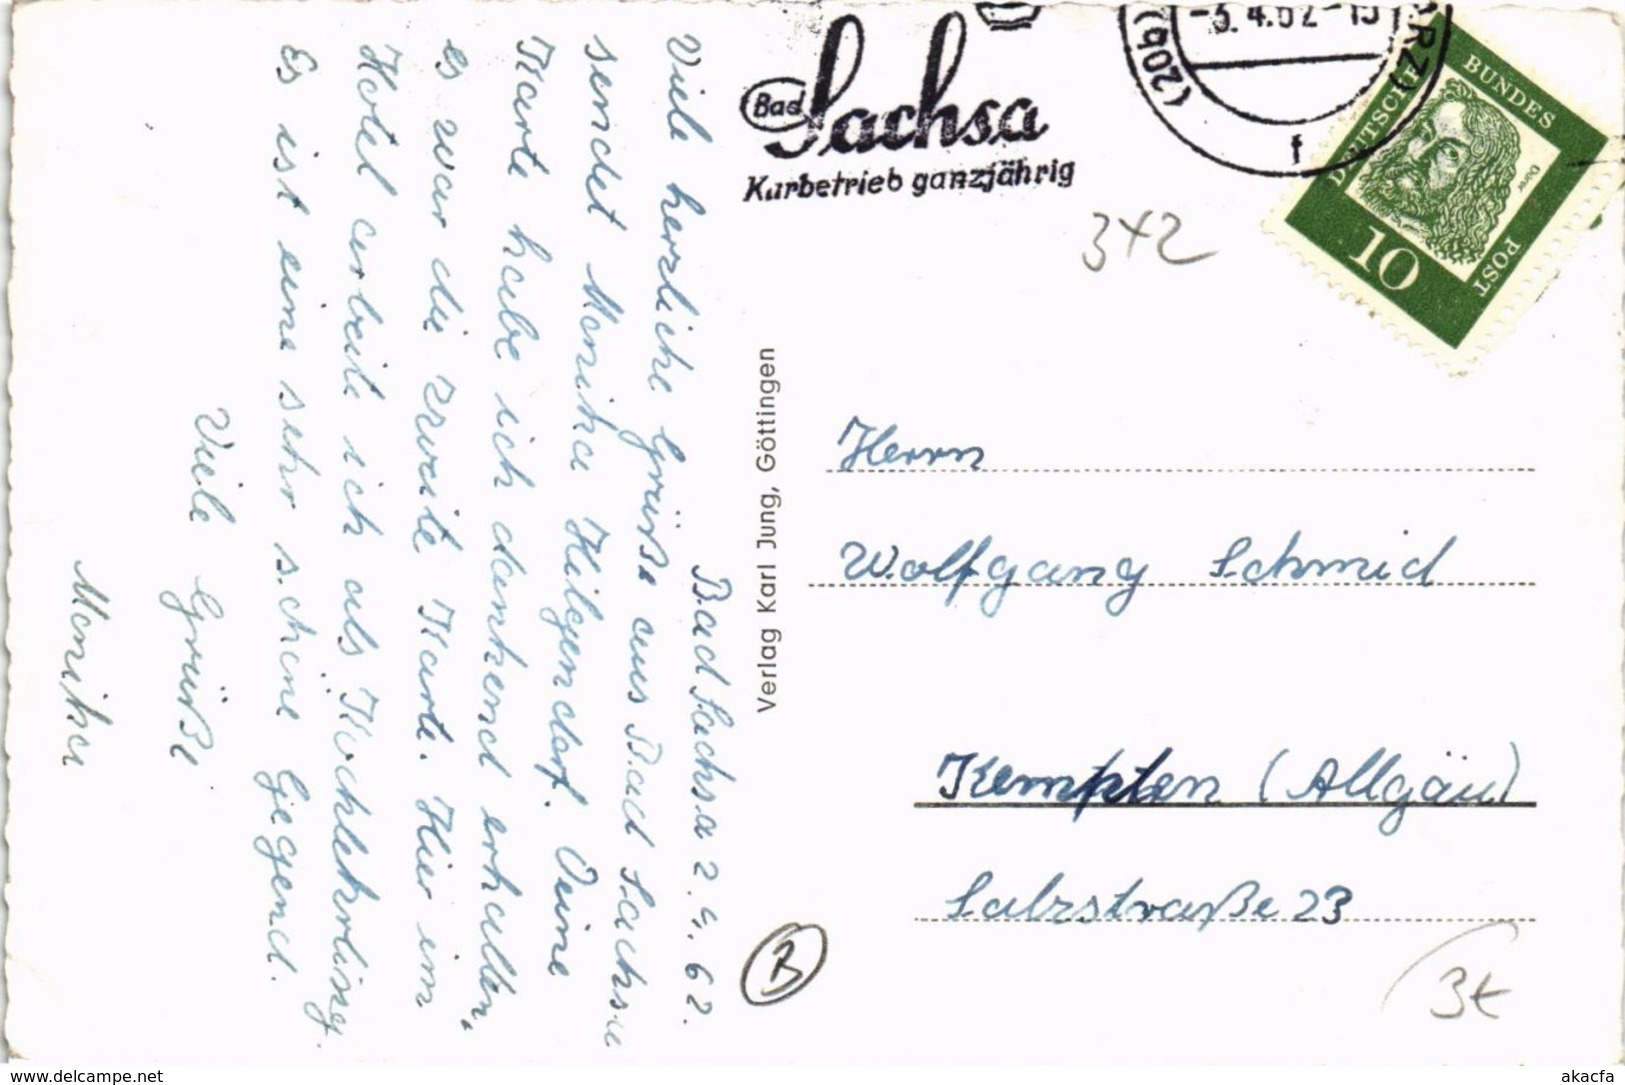 Bad Sachsa
Kurbetrieb ganzjährig
-3.4.62-15
(20b)
ARZ)
f
DEUTSCHE BUNDESPOST
Dürer
10
3x2
Bad Sachsa 2.4.62.
Viele herzliche Grüße aus Bad Sachsa
sendet Monika Hilgendorf. Deine
Karte habe ich dankend erhalten,
es war die zweite Karte. Hier im
Hotel arbeite ich als Kochlehrling.
Es ist eine sehr schöne Gegend.
Viele Grüße
Monika
Verlag Karl Jung, Göttingen
Herrn
Wolfgang Schmid
Kempten (Allgäu)
Salzstraße 23
B
3€
www.delcampe.net
akacfa